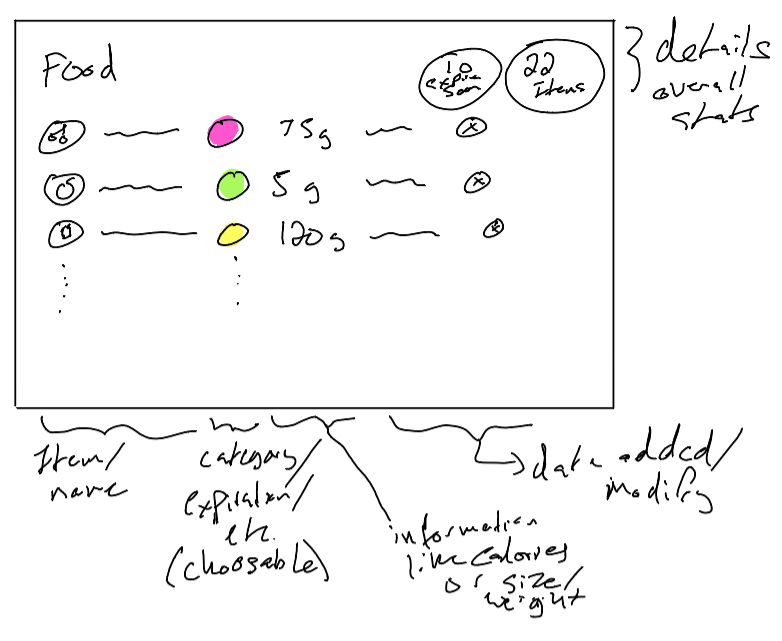 Food
10
expire
soon
22
Items
75g
5 g
120g
details
overall
stats
Item/
name
category
expiration/
etc.
(choosable)
information
like calories
or size/
weight
date added/
modify